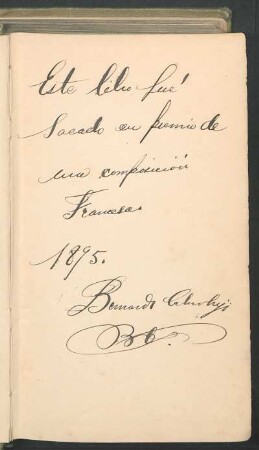 Este libro fué
Sacado en premio de
una composición
Francesa
1895.
Bernardo